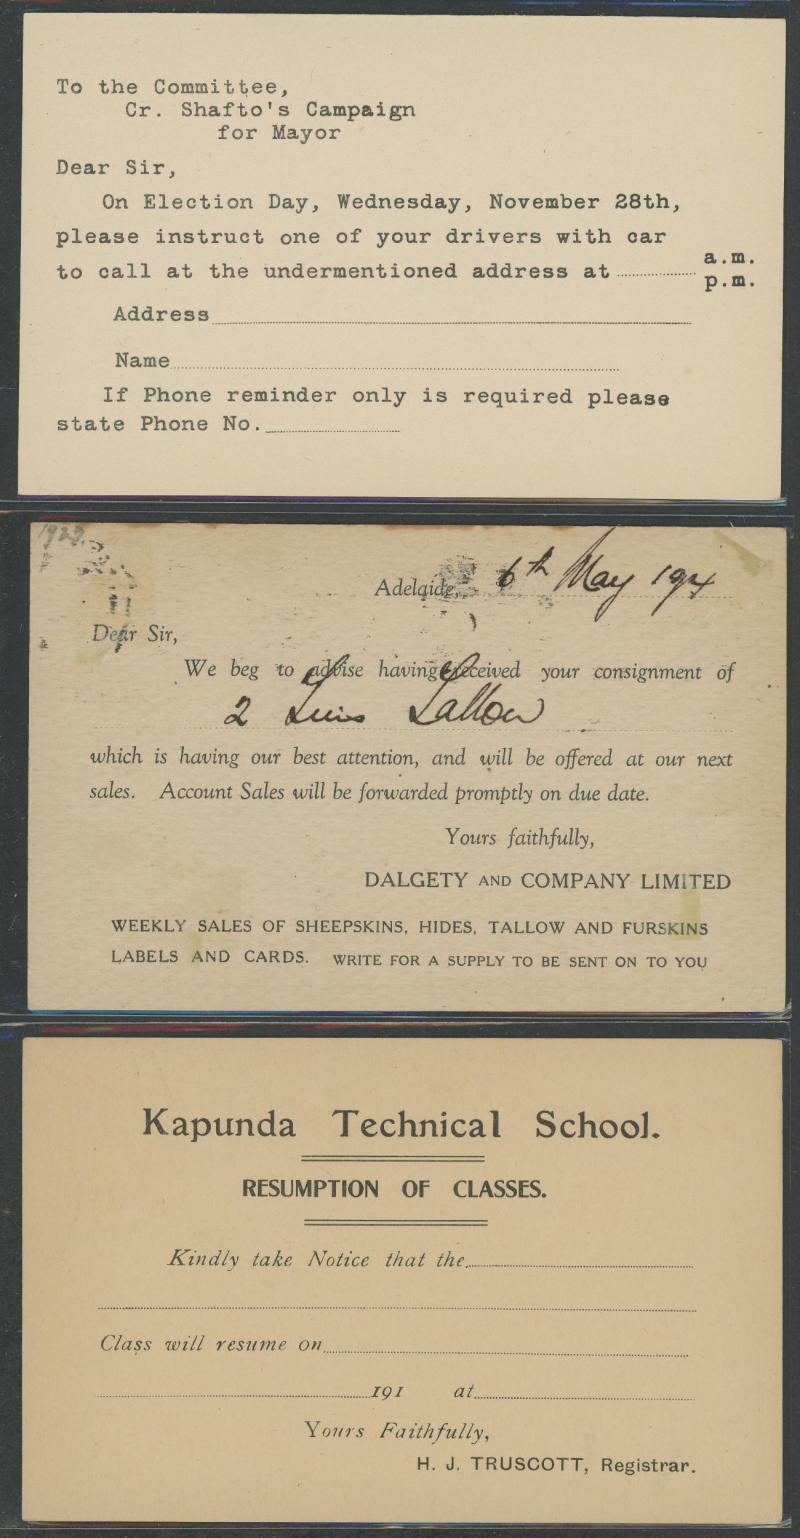 To the Committee,
Cr. Shafto's Campaign
for Mayor
Dear Sir,
On Election Day, Wednesday, November 28th,
please instruct one of your drivers with car
to call at the undermentioned address at a.m.
p.m.
Address
Name
If Phone reminder only is required please
state Phone No.
Adelaide, 6th May 194
Dear Sir,
We beg to advise having received your consignment of
2 Tallow
which is having our best attention, and will be offered at our next
sales. Account Sales will be forwarded promptly on due date.
Yours faithfully,
DALGETY AND COMPANY LIMITED
WEEKLY SALES OF SHEEPSKINS, HIDES, TALLOW AND FURSKINS
LABELS AND CARDS. WRITE FOR A SUPPLY TO BE SENT ON TO YOU
Kapunda Technical School.
RESUMPTION OF CLASSES.
Kindly take Notice that the
Class will resume on
191 at
Yours Faithfully,
H. J. TRUSCOTT, Registrar.